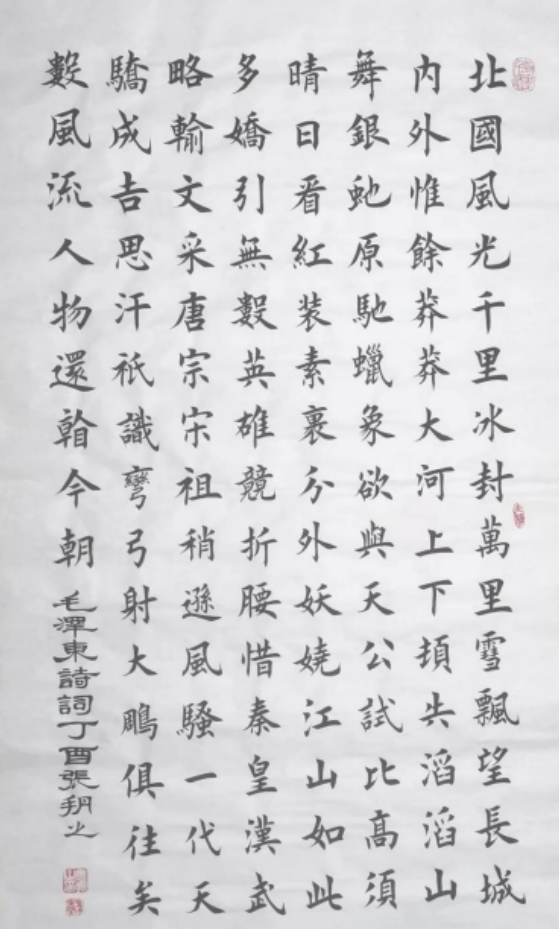 北國風光千里冰封萬里雪飄望長城
内外惟餘莽莽大河上下頓失滔滔山
舞銀虵原馳蠟象欲與天公試比高須
晴日看紅装素裹分外妖嬈江山如此
多嬌引無數英雄競折腰惜秦皇漢武
略輸文采唐宗宋祖稍遜風騷一代天
驕成吉思汗祇識彎弓射大鵰俱往矣
數風流人物還看今朝
毛澤東詩詞丁酉張